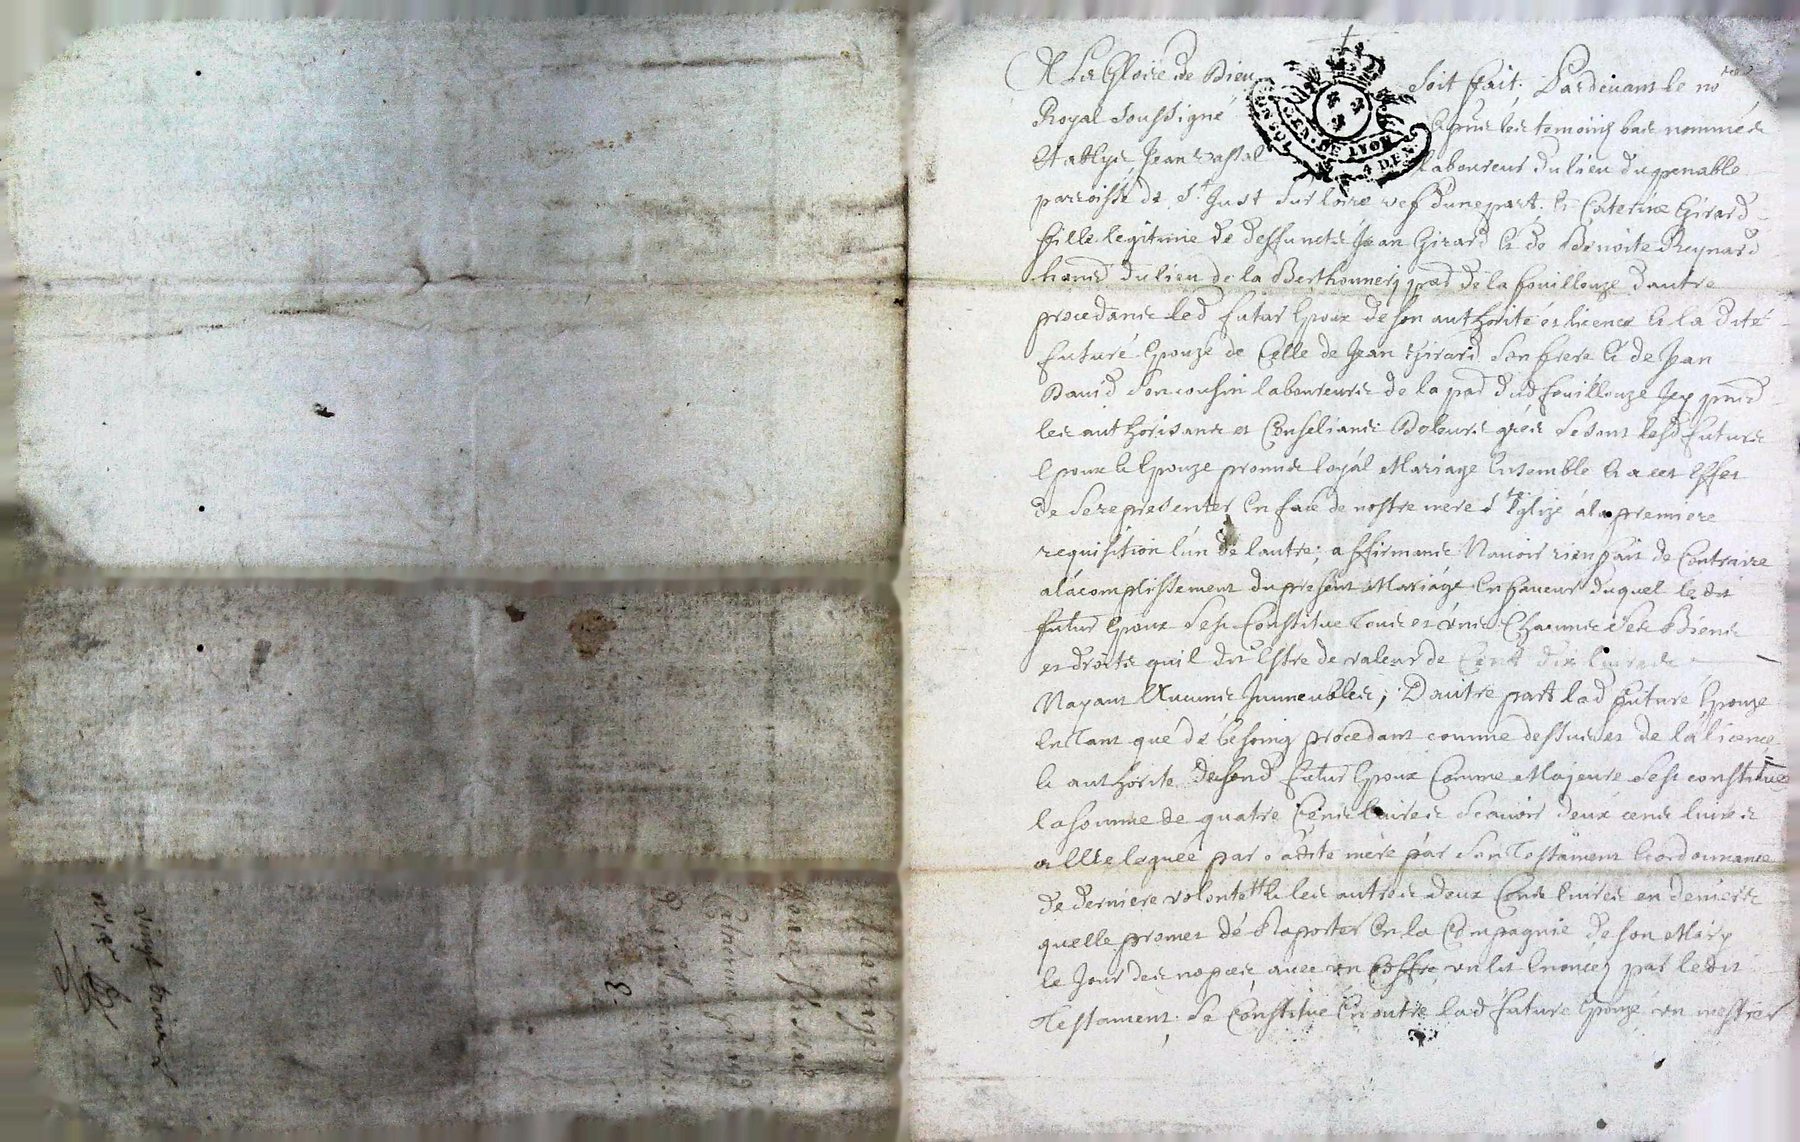 A La Gloire de Dieu soit fait. Pardevant le no.re
Royal soussigné & pnts les temoins bas nommés
Establys Jean Vassal laboureur du lieu du
parroisse de St Just sur loire vef dune part. & Caterine Girard
fille legitime de deffuncts Jean Girard & de Benoite Reynard
du lieu de la Berthonnery de la fouillouze dautre
procedants led futur Epoux de son authorité et licence & la dite
future Epouze de Celle de Jean Girard son frere & de Jean
David son cousin laboureurs de la dud fouillouze Icy
les authorisants et Conseliants De leurs grés se sont lesd futurs
Epoux & Epouze promis loyál Mariage Ensemble & a cet Effet
de se representer En face de nostre mere Ste Eglize á la premiere
requisition lún dé lautre; affirmants Navoir rien fait de Contraire
alácomplissement du present Mariáge En faveur duquel le dit
futur Epoux sest Constitué Tous et uns Chacuns ses Biens
et droits quil dit Estre de valeur de Cent dix livres
Nayant Aucuns Immeubles; Dautre part lad future Epouze
En Tant que dé besoing procedant comme dessus et de lá licence
& authorité dud futur Epoux Comme Majeure sest constituée
la somme de quatre Cents livres Scavoir deux cents livres
a Elle leguée par sadite mere pár son Testament & ordonnance
de derniere volonté & les autres deux Cents livres en deniers
quelle promet dé Raporter En la Compagnie de son Máry
le Jour des nopces avec un Coffre un lit Enoncez par le dit
Testament. Se Constitue En outre lad future Epouze un mestier
Mariage
Caterine Girard
3.
vingt trois